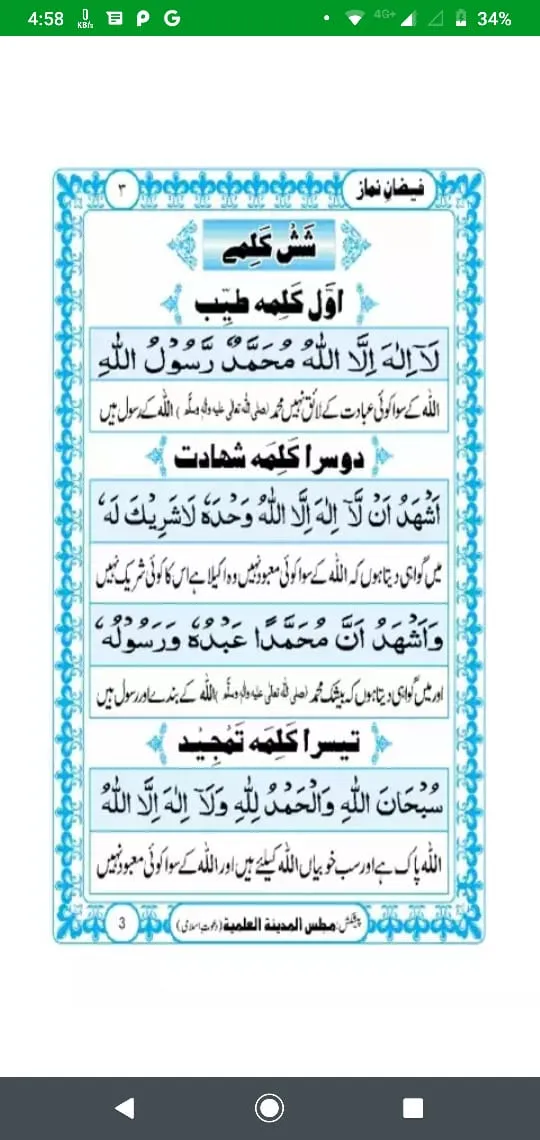 4:58 0 KB/s P G 4G+ 34%
فیضانِ نماز ٣
شَشْ کَلِمے
اوَّل کَلِمَہ طَیِّب
لَآ اِلٰهَ اِلَّا اللّٰهُ مُحَمَّدٌ رَّسُوْلُ اللّٰهِ
اللّٰه کے سوا کوئی عبادت کے لائق نہیں محمد (صلی اللّٰه تعالٰی علیہ والہٖ وسلَّم) اللّٰه کے رسول ہیں
دوسرا کَلِمَہ شھادت
اَشْهَدُ اَنْ لَّآ اِلٰهَ اِلَّا اللّٰهُ وَحْدَهٗ لَاشَرِيْكَ لَهٗ
میں گواہی دیتا ہوں کہ اللّٰه کے سوا کوئی معبود نہیں وہ اکیلا ہے اس کا کوئی شریک نہیں
وَاَشْهَدُ اَنَّ مُحَمَّدًا عَبْدُهٗ وَرَسُوْلُهٗ
اور میں گواہی دیتا ہوں کہ بیشک محمد (صلی اللّٰه تعالٰی علیہ والہٖ وسلَّم) اللّٰه کے بندے اور رسول ہیں
تیسرا کَلِمَہ تَمْجِیْد
سُبْحَانَ اللّٰهِ وَالْحَمْدُ لِلّٰهِ وَلَآ اِلٰهَ اِلَّا اللّٰهُ
اللّٰه پاک ہے اور سب خوبیاں اللّٰه کیلئے ہیں اور اللّٰه کے سوا کوئی معبود نہیں
پیشکش: مجلس المدینة العلمیة (دعوتِ اسلامی) 3